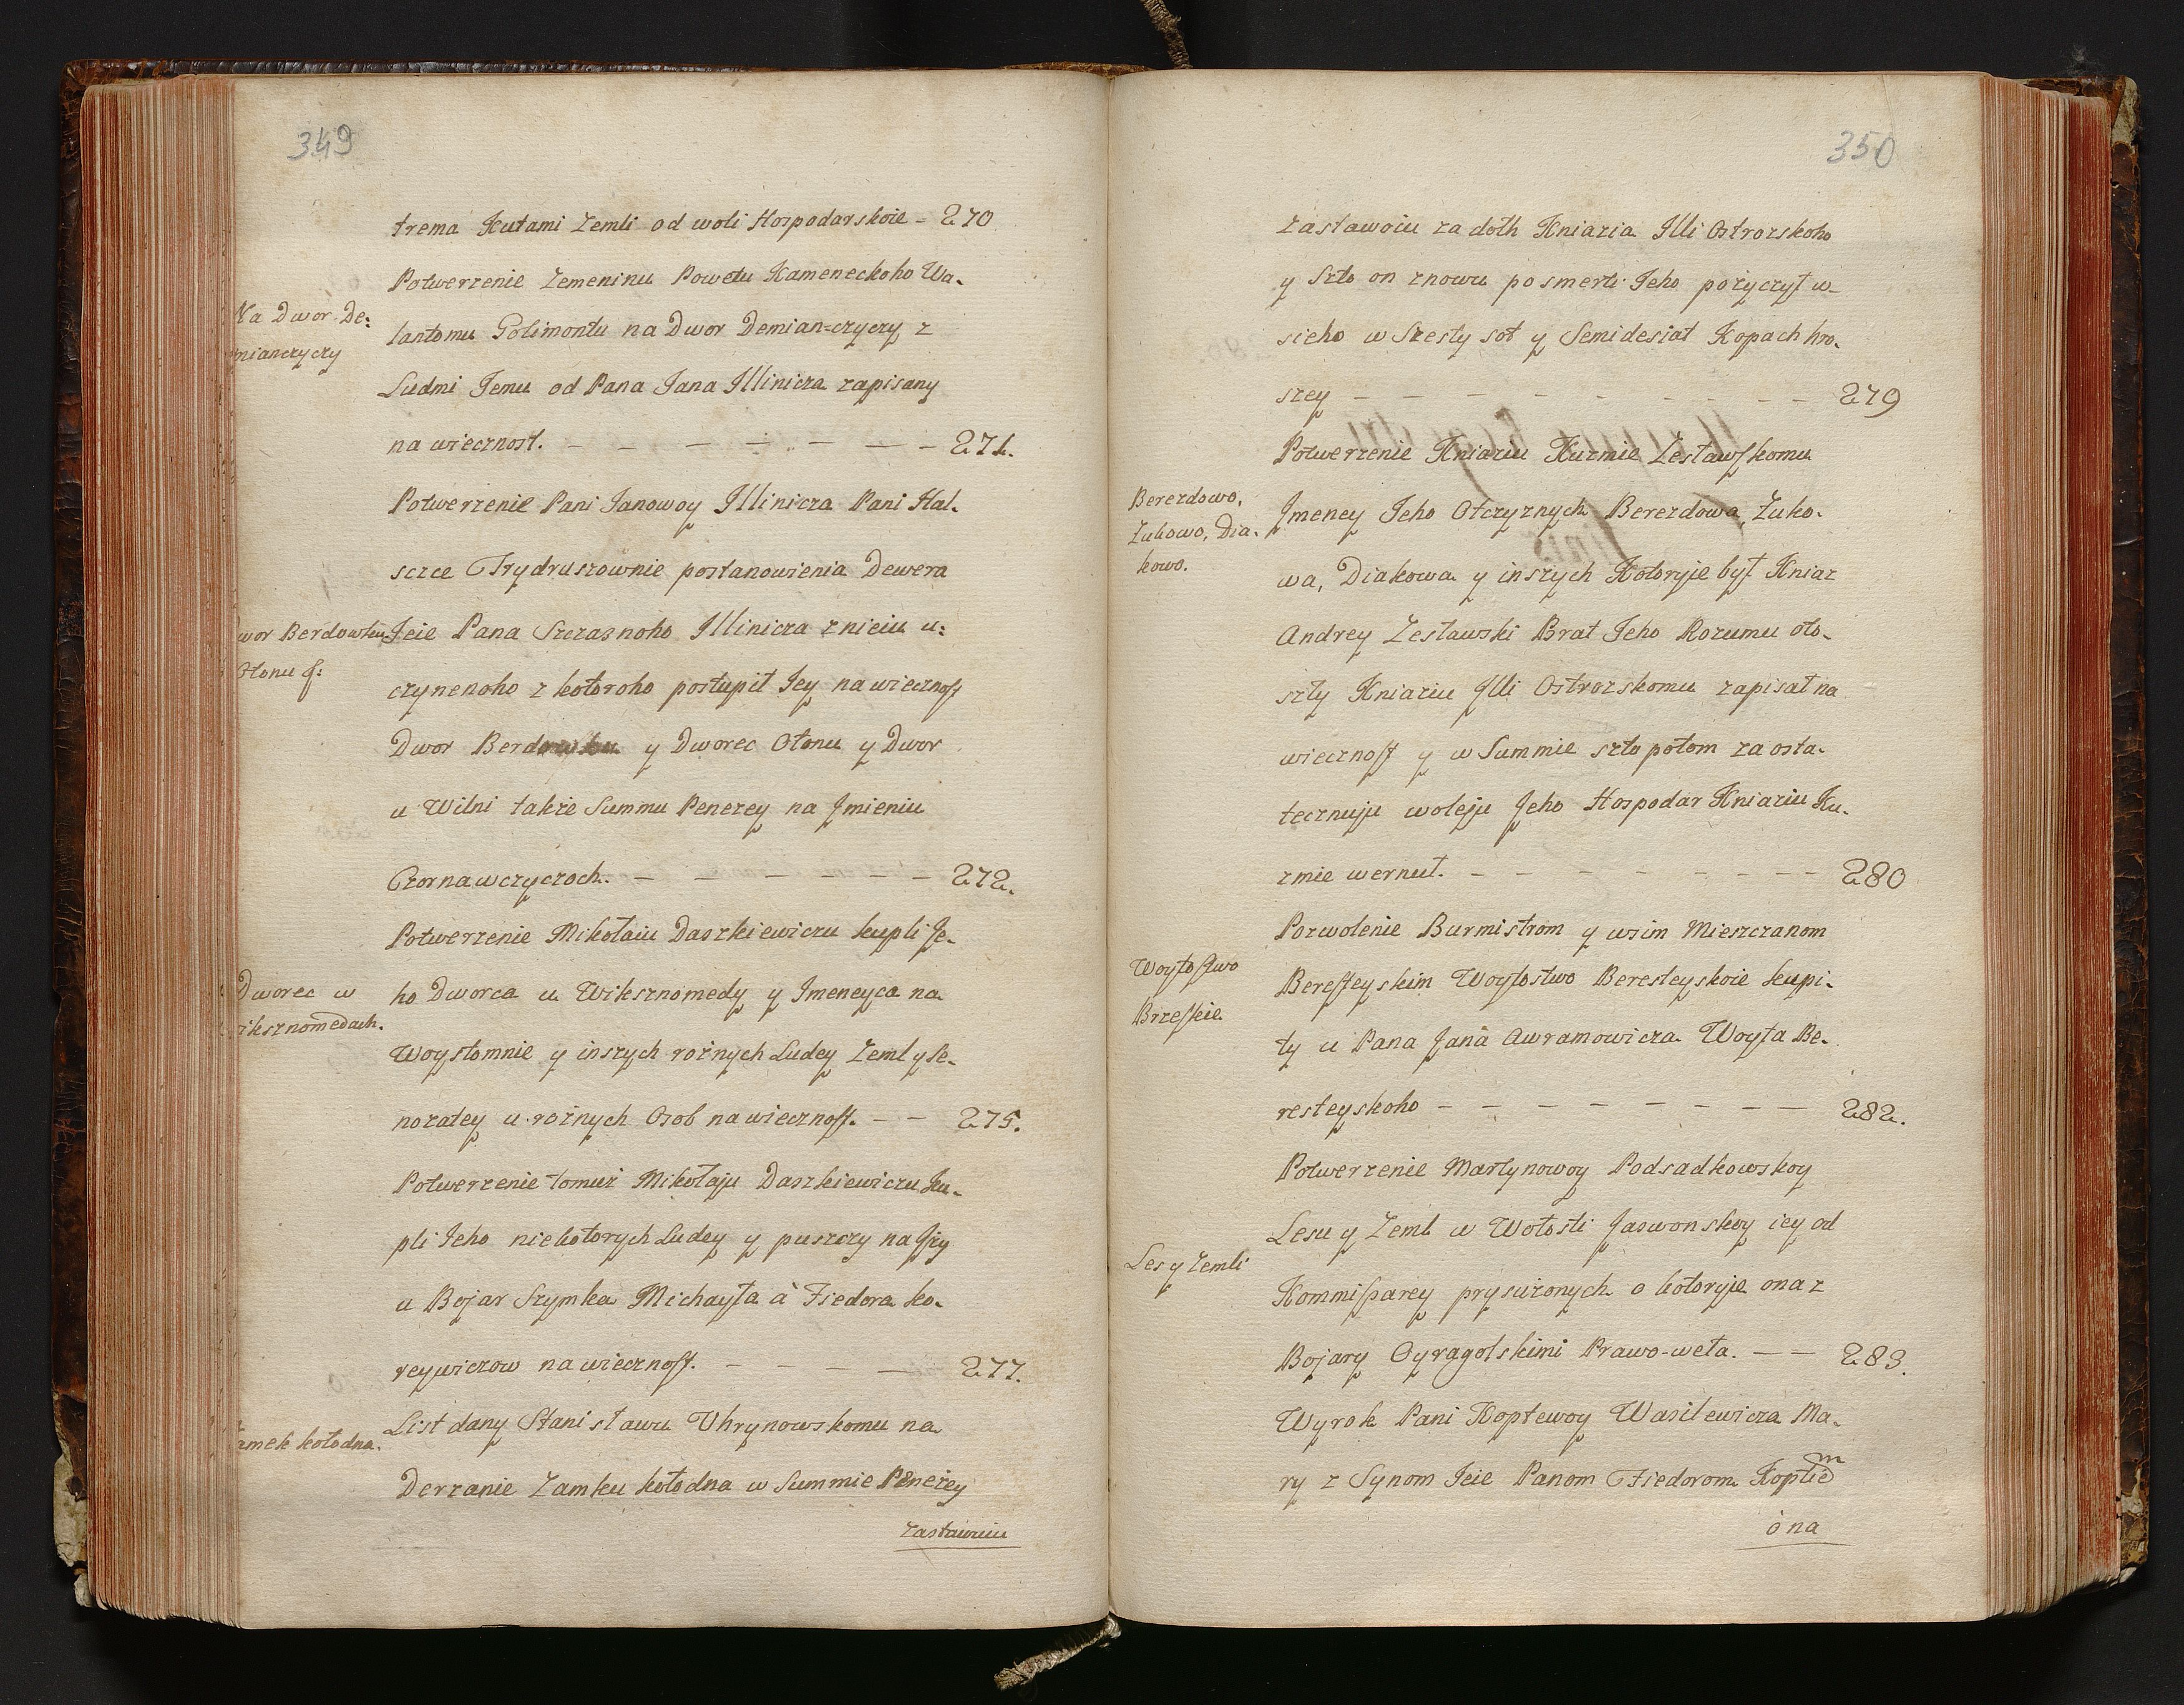 349
trema Kutami Zemli od woli Hospodarskoie - 270
Potwerzenie Zemeninu Powetu Kameneckoho Wa-
Na Dwor De:
mianczyczy
lantomu Golimontu na Dwor Demian=czyczy z
Ludmi Jemu od Pana Jana Illinicza zapisany
na wiecznost. - - - - - - - 271.
Potwerzenie Pani Janowoy Illinicza Pani Hal-
szce Trydruszownie postanowienia Dewera
wor Berdowku
Otonu &:
Jeie Pana Szczasnoho Illinicza z nieiu u:
czynenoho z kotoroho postupił Jey na wiecznost
Dwor Berdowku y Dworec Otonu y Dwor
u Wilni także Summu Penezey na Jmieniu
Czornawczyczoch. - - - - - - 272.
Potwerzenie Mikołaiu Daszkiewiczu kupli Je-
Dworec w
iksznomedach.
ho Dworca u Wiksznomedy y Jmeneyca na
Woystomnie y inszych rożnych Ludey Zeml y Se-
nozatey u rożnych Osob na wiecznost. - - 275.
Potwerzenie tomuż Mikołaju Daszkiewiczu Ku-
pli Jeho niekotorych Ludey y puszczy na Jży
u Bojar Szymka Michayła à Fiedora ko-
reywiczow na wiecznost. - - - - 277.
amek kołodna.
List dany Stanisławu Uhrynowskomu na
Derzanie Zamku kołodna w Summie Penežey
zastawuiu
350
zastawoiu za dolh Kniazia Illi Ostrozskoho
y Szto on znowu po smerti Jeho pożyczył w-
sieho w Szesty sot y Semidesiat Kopach hro-
szey - - - - - - - - - 279
Potwerzenie Kniaziu Kuzmie Zesławskomu
Berezdowo,
Zukowo, Dia-
kowo.
Jmeney Jeho Otczyznych Berezdowa, Zuko-
wa, Diakowa y inszych Kotoryie był Kniaz
Andrey Zesławski Brat Jeho Rozumu oto-
szły Kniaziu Illi Ostrozskomu zapisał na
wiecznost y w Summie szto potom za osta-
tecznuju woleju Jeho Hospodar Kniaziu Ku-
zmie wernuł. - - - - - - - 280
Pozwolenie Burmistrom y wsim Mieszczanom
Woytostwo
Brzeskie
Beresteyskim Woytostwo Beresteyskoie kupi-
ty u Pana Jana Awramowicza Woyta Be-
resteyskoho - - - - - - - - 282.
Potwerzenie Martynowoy Podsadkowskoy
Les y Zemli
Lesu y Zeml w Wołosti Jaswonskoy iey od
Kommissarey prysużonych o kotoryie ona z
Bojary Oyragolskimi Prawo-weła. - - 283.
Wyrok Pani Koptewoy Wasilewicza Ma-
ry z Synom Jeie Panom Fiedorom Koptiem
ò na